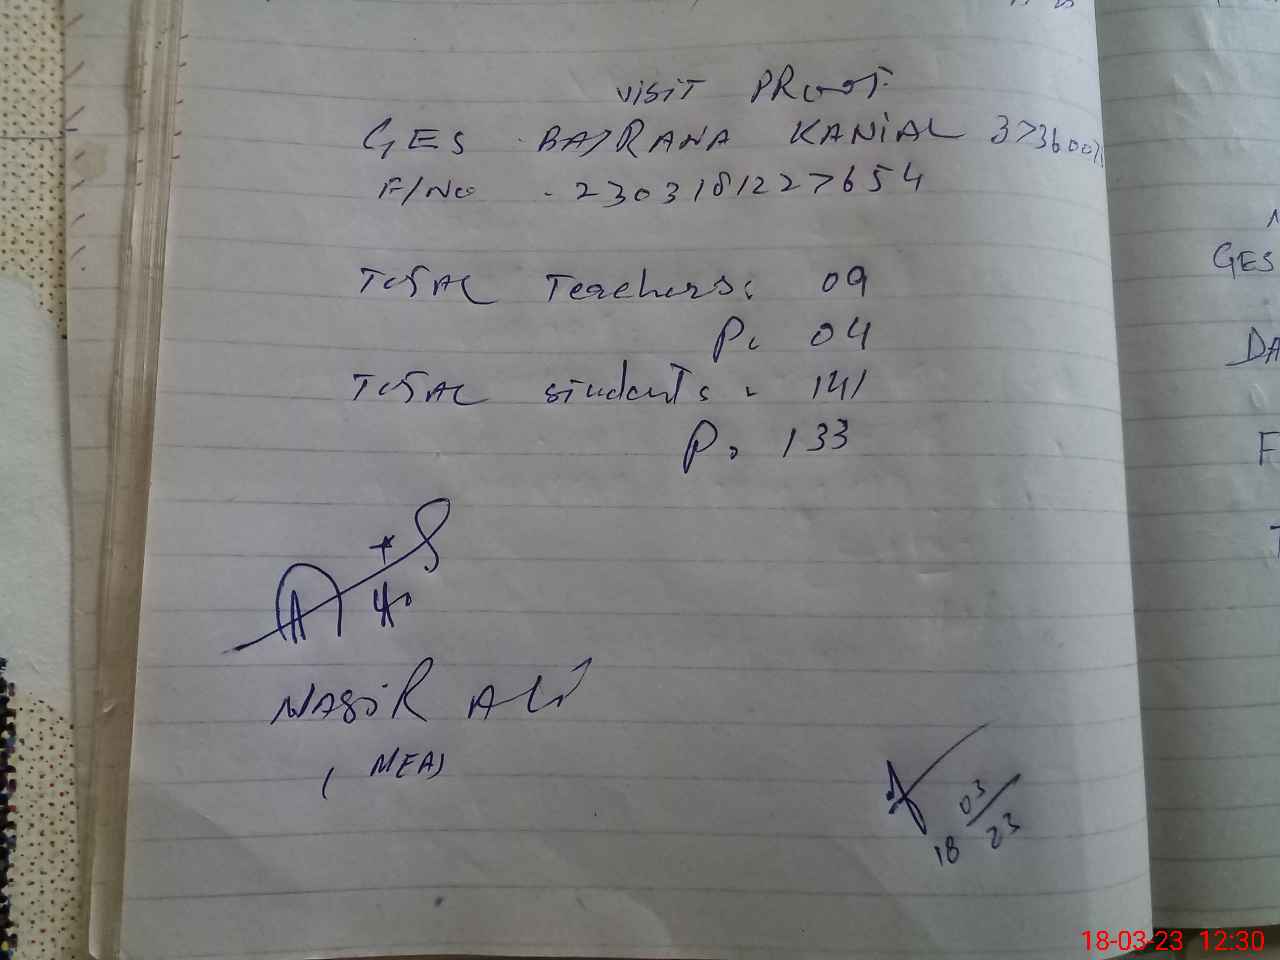 VISIT PROOF
GES BAJRANA KANIAL
F/No - 2303181227654
TOTAL Teachers: 09
P. 04
TOTAL students - 141
P. 133
NASIR ALi
( MEA)
18 03/23
GES
DA
18-03-23 12:30